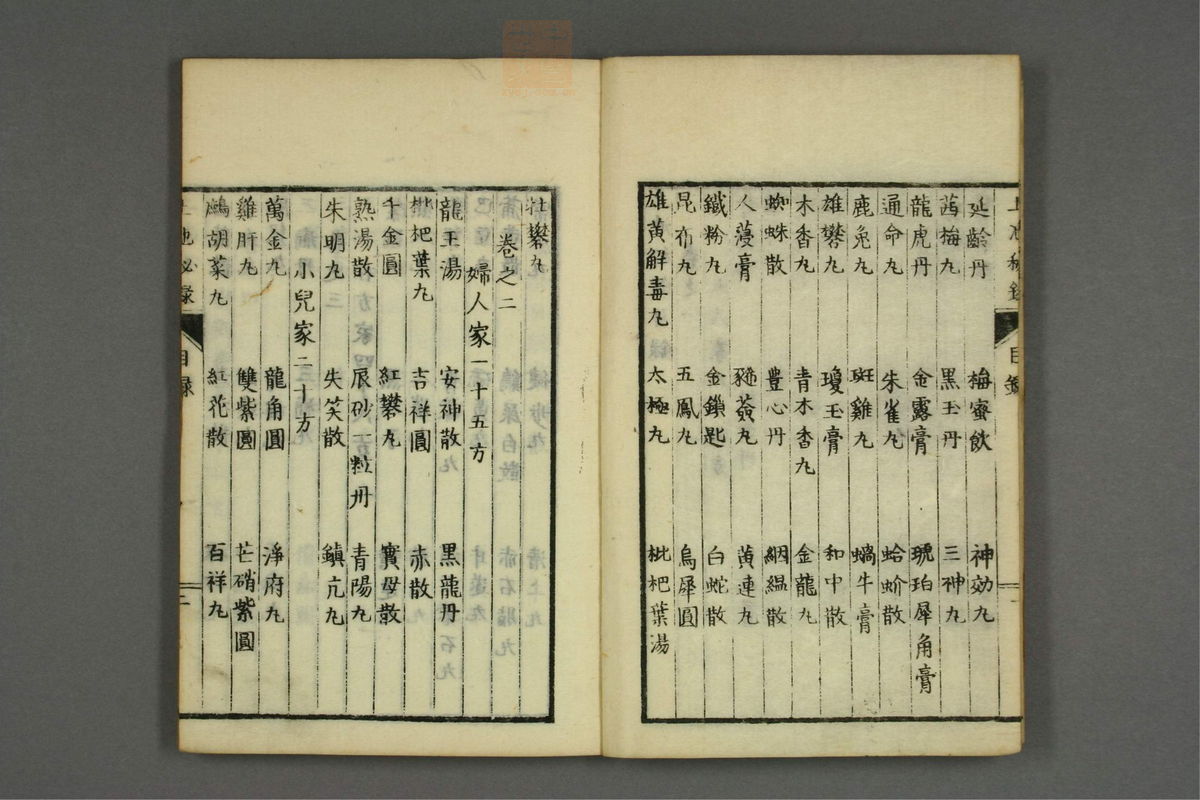 延齡丹 梅蜜飲 神効丸
茜梅丸 黒玉丹 三神丸
龍虎丹 金露膏 琥珀犀角膏
通命丸 朱雀丸 蛤蚧散
鹿兔丸 斑雞丸 蝸牛膏
雄礬丸 瓊玉膏 和中散
木香丸 青木香丸 金龍丸
蜘蛛散 豊心丹 絪緼散
人蓡膏 豨薟丸 黄連丸
鐵粉丸 金鎖匙 白蛇散
昆布丸 五鳳丸 烏犀圓
雄黄解毒丸 太極丸 枇杷葉湯
牡礬丸
卷之二
婦人家一十五方
龍王湯 安神散 黑龍丹
枇杷葉丸 吉祥圓 赤散
千金圓 紅礬丸 寳母散
熟湯散 辰砂一粒丹 青陽丸
朱明丸 失笑散 鎮亢丸
小兒家二十方
萬金丸 龍角圓 淨府丸
雞肝丸 雙紫圓 芒硝紫圓
鷓胡菜丸 紅花散 百祥丸
目錄